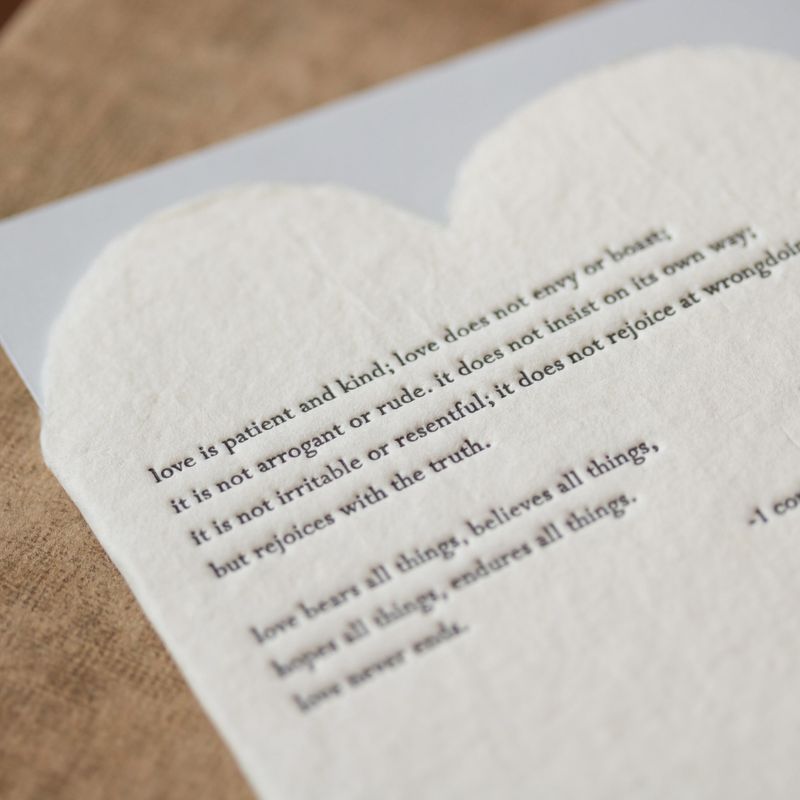 love is patient and kind; love does not envy or boast;
it is not arrogant or rude. it does not insist on its own way;
it is not irritable or resentful; it does not rejoice at wrongdoin
but rejoices with the truth.
love bears all things, believes all things,
hopes all things, endures all things.
love never ends.
-1 co